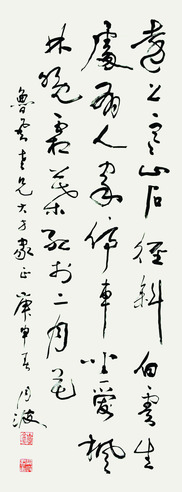 远上寒山石径斜白云生
处有人家停车坐爱枫
林晚霜叶红于二月花
鲁云老兄大方家正 庚申春 同波